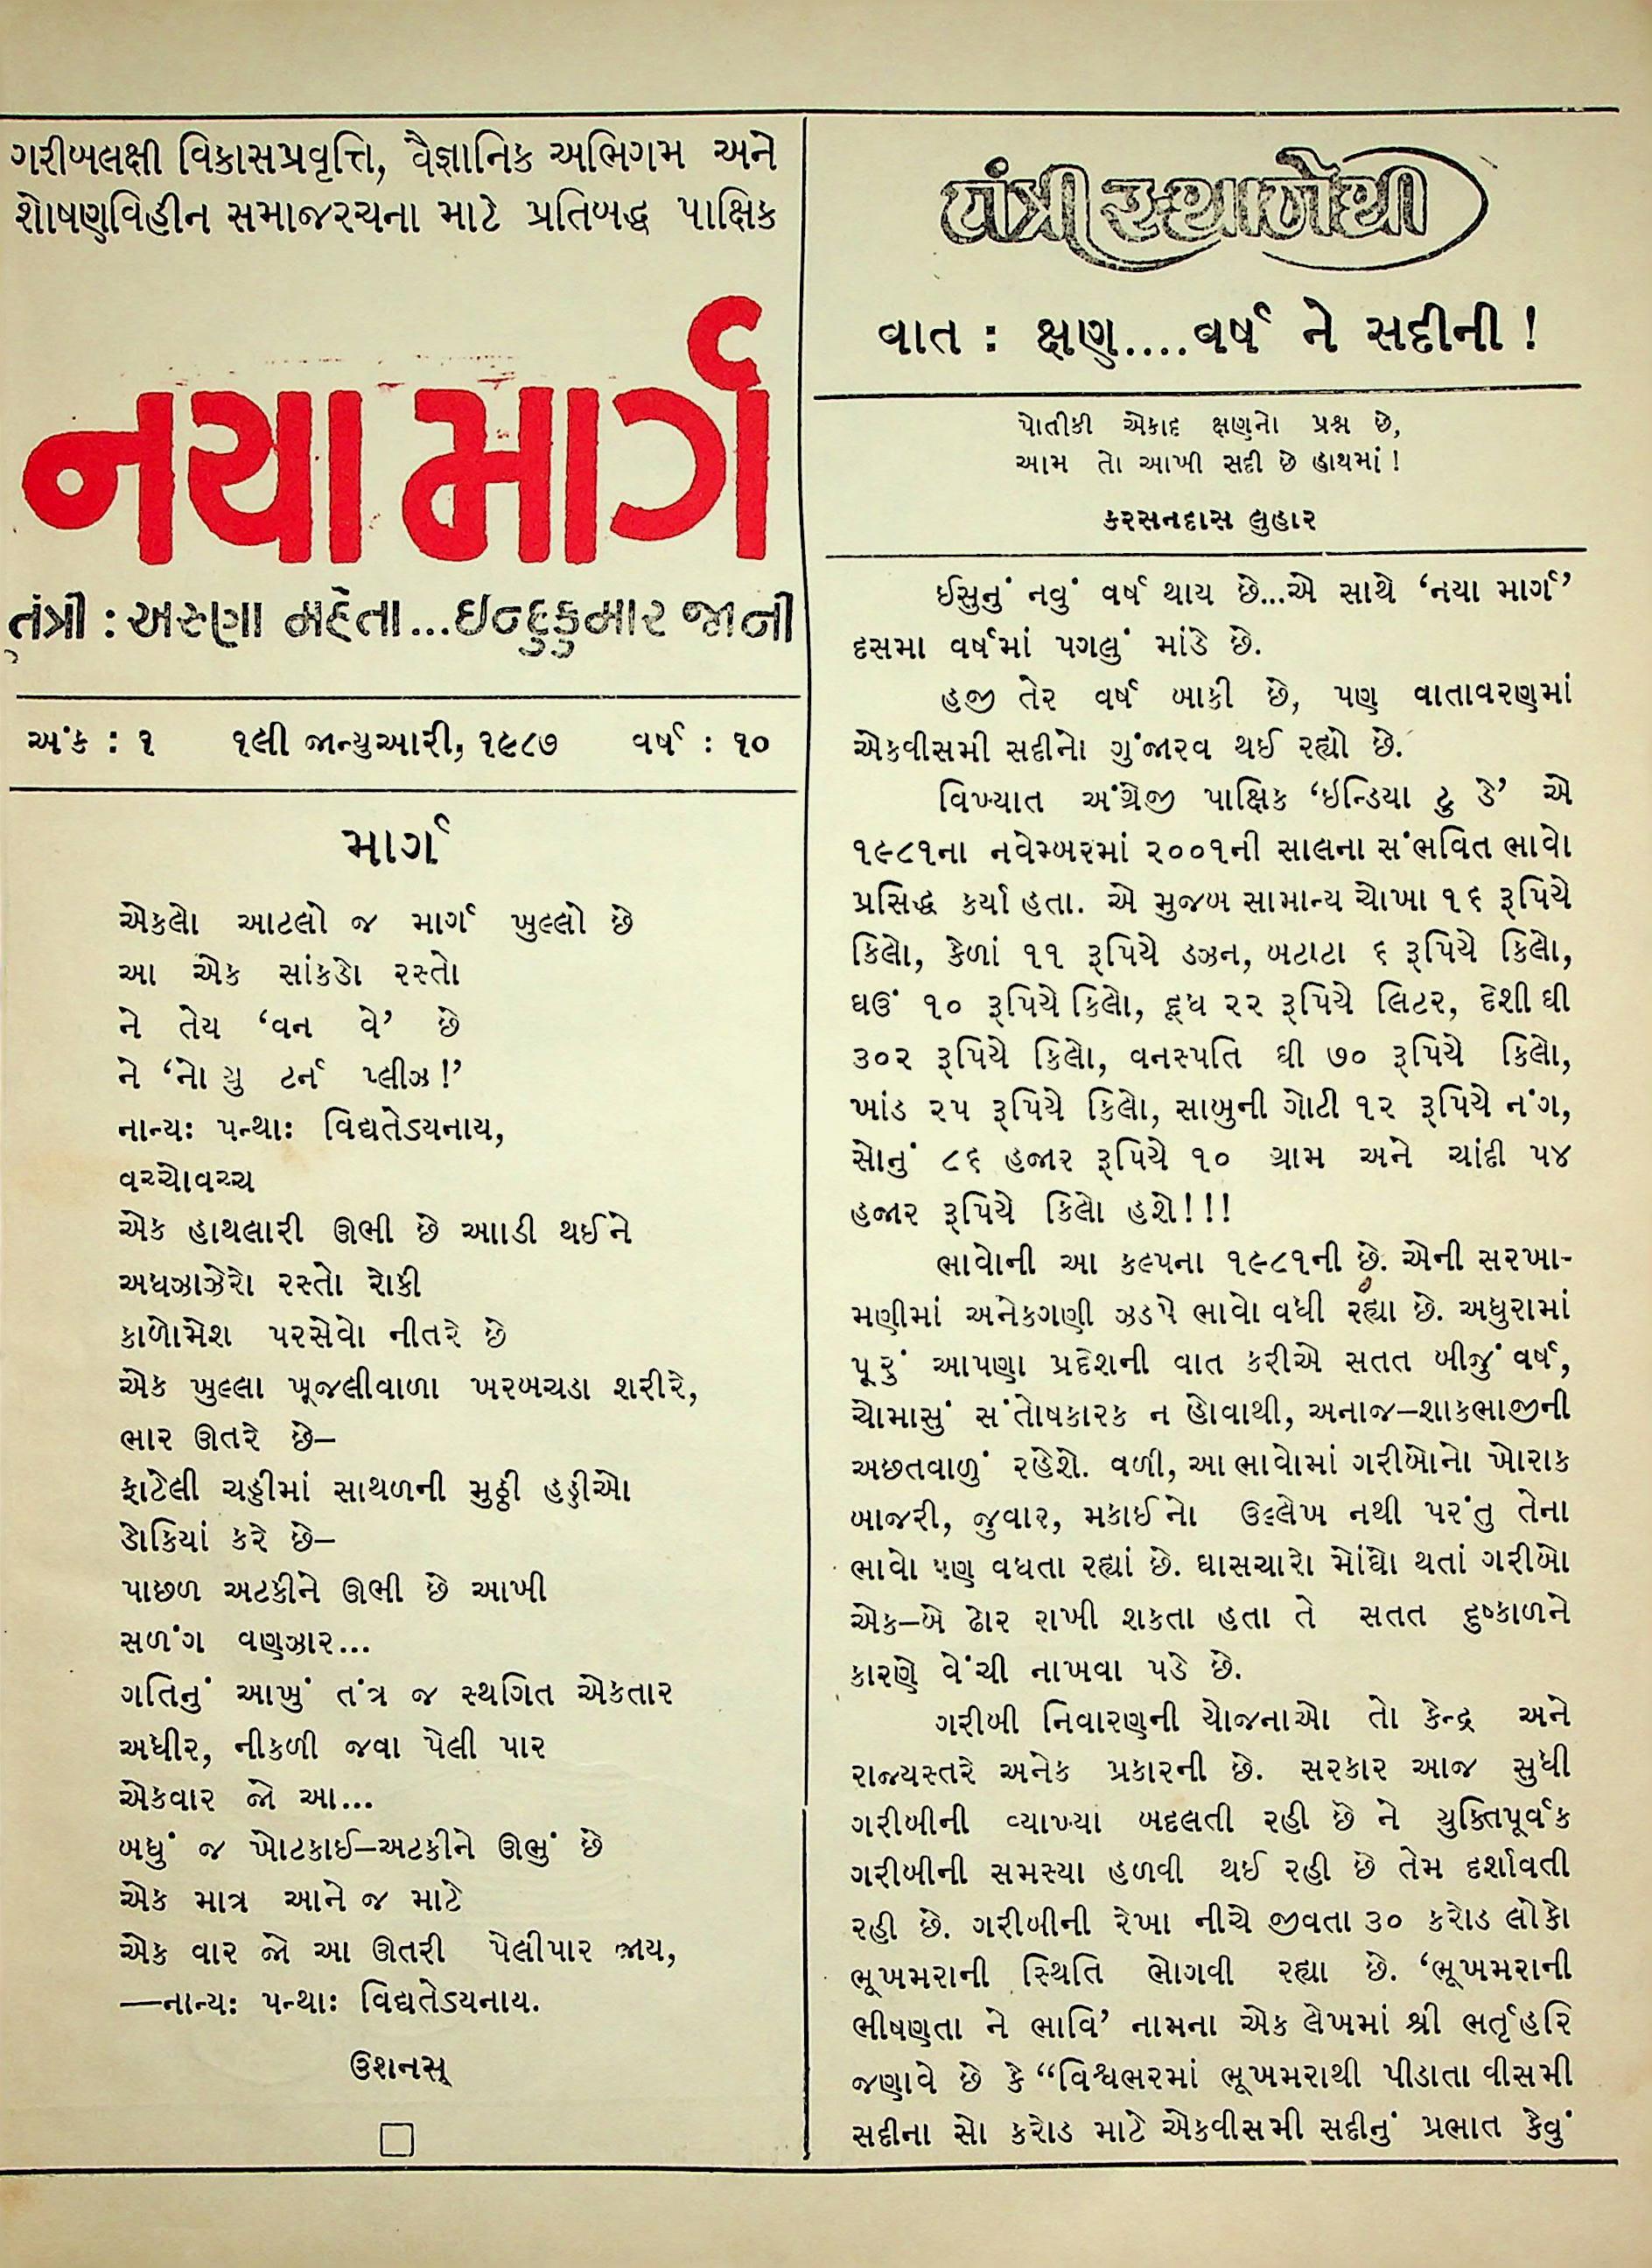 ગરીબલક્ષી વિકાસપ્રવૃત્તિ, વૈજ્ઞાનિક અભિગમ અને
શોષણવિહીન સમાજરચના માટે પ્રતિબદ્ધ પાક્ષિક
નયા માર્ગ
તંત્રી : અરુણા મહેતા...ઇન્દુકુમાર જાની
અંક : ૧ ૧લી જાન્યુઆરી, ૧૯૮૭ વર્ષ : ૧૦
માર્ગ
એકલો આટલો જ માર્ગ ખુલ્લો છે
આ એક સાંકડો રસ્તો
ને તેય ‘વન વે’ છે
ને ‘નો યુ ટર્ન પ્લીઝ!’
નાન્યઃ પન્થાઃ વિદ્યતેડયનાય,
વચ્ચોવચ્ચ
એક હાથલારી ઊભી છે આાડી થઈને
અધઝાઝેરો રસ્તો રોકી
કાળોમેશ પરસેવો નીતરે છે
એક ખુલ્લા ખૂજલીવાળા ખરબચડા શરીરે,
ભાર ઊતરે છે–
ફાટેલી ચડ્ડીમાં સાથળની મુઠ્ઠી હડ્ડીઓ
ડોકિયાં કરે છે–
પાછળ અટકીને ઊભી છે આખી
સળંગ વણઝાર...
ગતિનું આખું તંત્ર જ સ્થગિત એકતાર
અધીર, નીકળી જવા પેલી પાર
એકવાર જો આ...
બધું જ ખોટકાઈ–અટકીને ઊભું છે
એક માત્ર આને જ માટે
એક વાર જો આ ઊતરી પેલીપાર જાય,
—નાન્યઃ પન્થાઃ વિદ્યતેડયનાય.
ઉશનસ્
તંત્રી સ્થાનેથી
વાત : ક્ષણ....વર્ષ ને સદીની !
પોતીકી એકાદ ક્ષણનો પ્રશ્ન છે,
આમ તો આખી સદી છે હાથમાં !
કરસનદાસ લુહાર
ઈસુનું નવું વર્ષ થાય છે...એ સાથે ‘નયા માર્ગ’
દસમા વર્ષમાં પગલું માંડે છે.
હજી તેર વર્ષ બાકી છે, પણ વાતાવરણમાં
એકવીસમી સદીનો ગુંજારવ થઈ રહ્યો છે.
વિખ્યાત અંગ્રેજી પાક્ષિક ‘ઇન્ડિયા ટુ ડે’ એ
૧૯૮૧ના નવેમ્બરમાં ૨૦૦૧ની સાલના સંભવિત ભાવો
પ્રસિદ્ધ કર્યા હતા. એ મુજબ સામાન્ય ચોખા ૧૬ રૂપિયે
કિલો, કેળાં ૧૧ રૂપિયે ડઝન, બટાટા ૬ રૂપિયે કિલો,
ઘઉં ૧૦ રૂપિયે કિલો, દૂધ ૨૨ રૂપિયે લિટર, દેશી ઘી
૩૦૨ રૂપિયે કિલો, વનસ્પતિ ઘી ૭૦ રૂપિયે કિલો,
ખાંડ ૨૫ રૂપિયે કિલો, સાબુની ગોટી ૧૨ રૂપિયે નંગ,
સોનું ૮૬ હજાર રૂપિયે ૧૦ ગ્રામ અને ચાંદી ૫૪
હજાર રૂપિયે કિલો હશે!!!
ભાવોની આ કલ્પના ૧૯૮૧ની છે. એની સરખા-
મણીમાં અનેકગણી ઝડપે ભાવો વધી રહ્યા છે. અધુરામાં
પૂરું આપણા પ્રદેશની વાત કરીએ સતત બીજું વર્ષ,
ચોમાસું સંતોષકારક ન હોવાથી, અનાજ–શાકભાજીની
અછતવાળું રહેશે. વળી, આ ભાવોમાં ગરીબોનો ખોરાક
બાજરી, જુવાર, મકાઈનો ઉલ્લેખ નથી પરંતુ તેના
ભાવો પણ વધતા રહ્યાં છે. ઘાસચારો મોંઘો થતાં ગરીબો
એક–બે ઢોર રાખી શકતા હતા તે સતત દુષ્કાળને
કારણે વેંચી નાખવા પડે છે.
ગરીબી નિવારણની યોજનાઓ તો કેન્દ્ર અને
રાજ્યસ્તરે અનેક પ્રકારની છે. સરકાર આજ સુધી
ગરીબીની વ્યાખ્યા બદલતી રહી છે ને યુક્તિપૂર્વક
ગરીબીની સમસ્યા હળવી થઈ રહી છે તેમ દર્શાવતી
રહી છે. ગરીબીની રેખા નીચે જીવતા ૩૦ કરોડ લોકો
ભૂખમરાની સ્થિતિ ભોગવી રહ્યા છે. ‘ભૂખમરાની
ભીષણતા ને ભાવિ’ નામના એક લેખમાં શ્રી ભર્તૃહરિ
જણાવે છે કે “વિશ્વભરમાં ભૂખમરાથી પીડાતા વીસમી
સદીના સો કરોડ માટે એકવીસમી સદીનું પ્રભાત કેવું